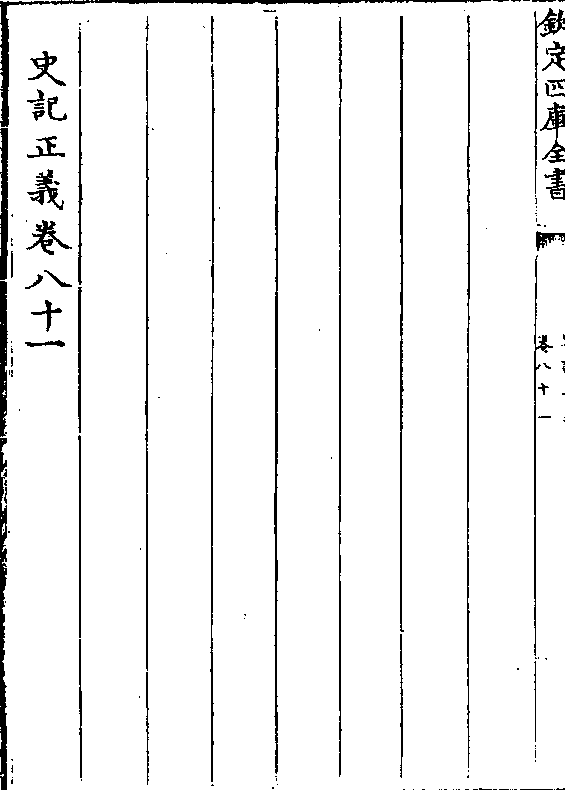 欽定四庫全書
卷八十一
史記正義卷八十一